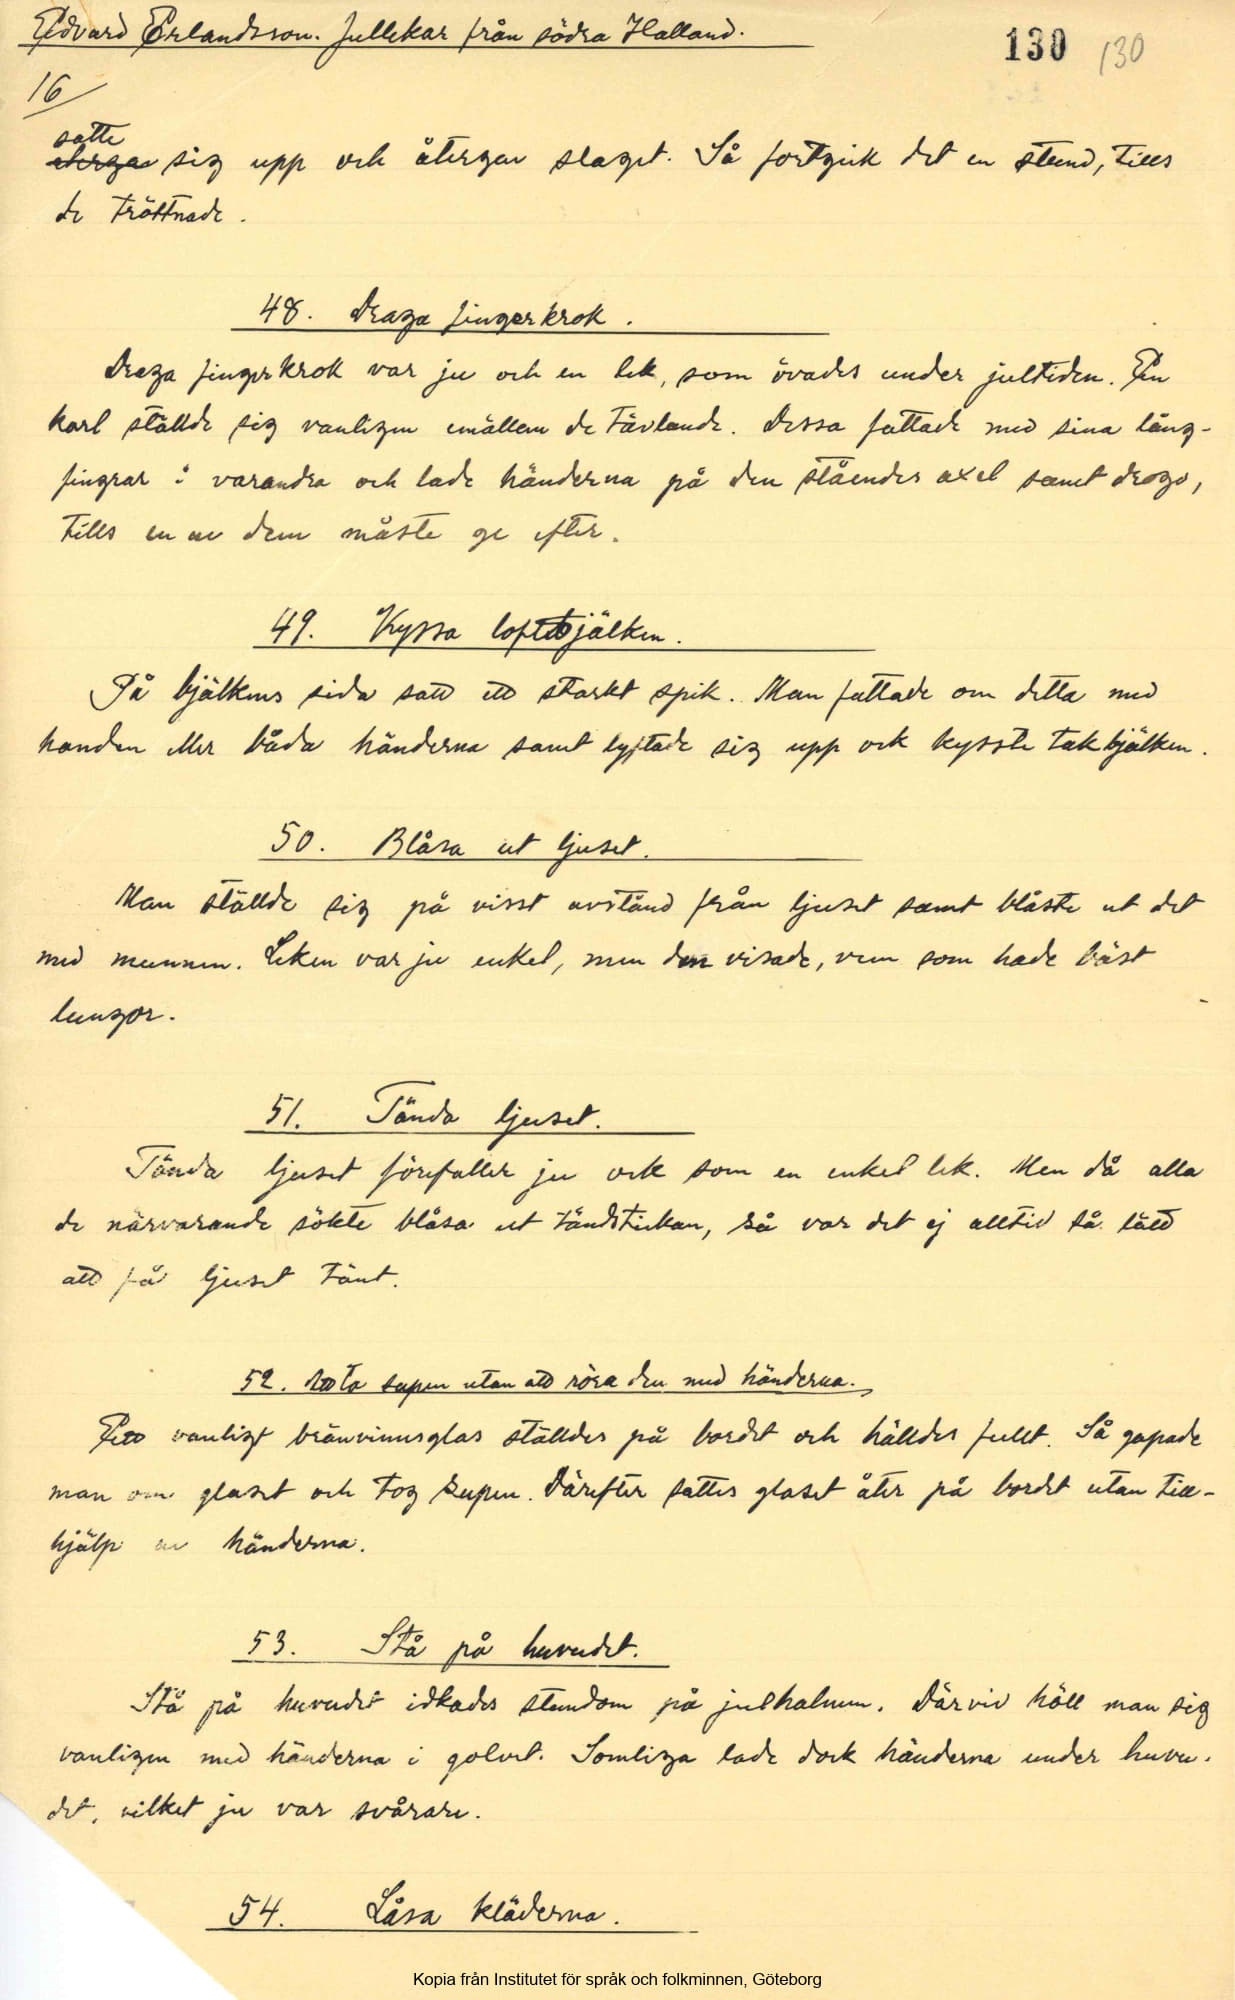 Edvard Erlandsson. Jullekar från södra Halland.
130 130
16
satte
återgav sig upp och återgav slaget. Så fortgick det en stund, tills
de tröttnade.
48. Draga fingerkrok.
Draga fingerkrok var ju och en lek, som övades under jultiden. En
karl ställde sig vanligen emällan de tävlande. Dessa fattade med sina lång-
fingrar i varandra och lade händerna på den ståendes axel samt drogo,
tills en av dem måste ge efter.
49. Kyssa loftbjälken.
På bjälkens sida satt ett starkt spik. Man fattade om detta med
handen eller båda händerna samt lyftade sig upp och kysste takbjälken.
50. Blåsa ut ljuset.
Man ställde sig på visst avstånd från ljuset samt blåste ut det
med munnen. Leken var ju enkel, men den visade, vem som hade bäst
lungor.
51. Tända ljuset.
Tända ljuset förefaller ju ock som en enkel lek. Men då alla
de närvarande sökte blåsa ut tändstickan, så var det ej alltid så lätt
att få ljuset tänt.
52. Att ta supen utan att röra den med händerna.
Ett vanligt bränvinnsglas ställdes på bordet och hälldes fullt. Så gapade
man om glaset och tog supen. Därefter sattes glaset åter på bordet utan till-
hjälp av händerna.
53. Stå på huvudet.
Stå på huvudet idkades stundom på julhalmen. Därvid höll man sig
vanligen med händerna i golvet. Somliga lade dock händerna under huvu-
det, vilket ju var svårare.
54. Låsa kläderna.
Kopia från Institutet för språk och folkminnen, Göteborg